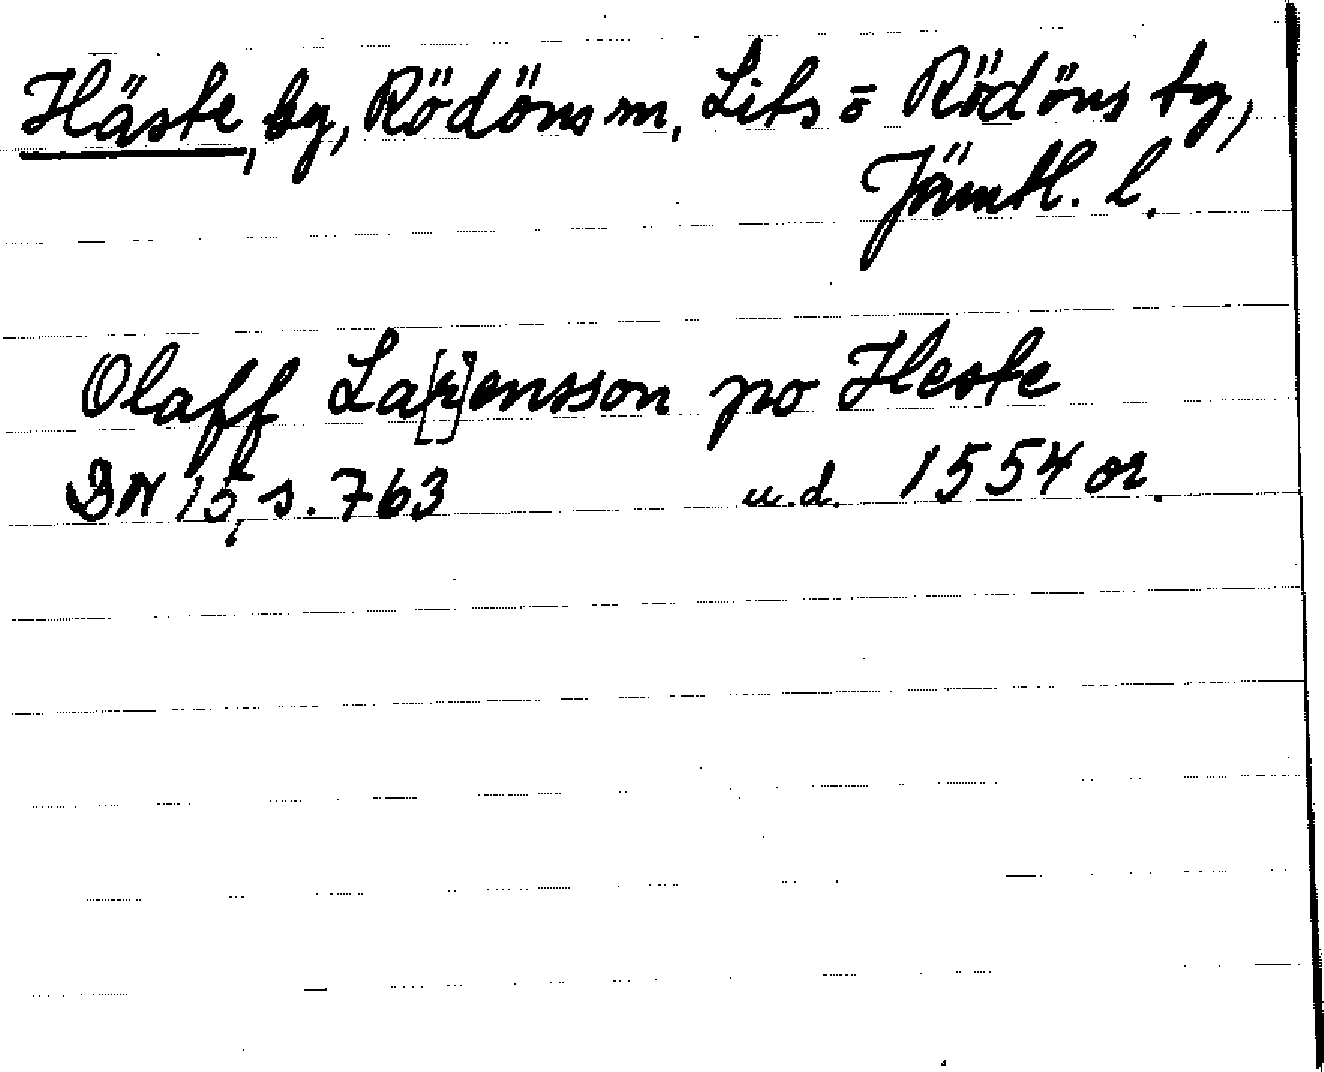 Häste, by, Rödöns sn, Lits o Rödöns tg,
Jämtl. l.
Olaff La[r]ensson po Heste
DN 15, s. 763 u.d. 1554 or.